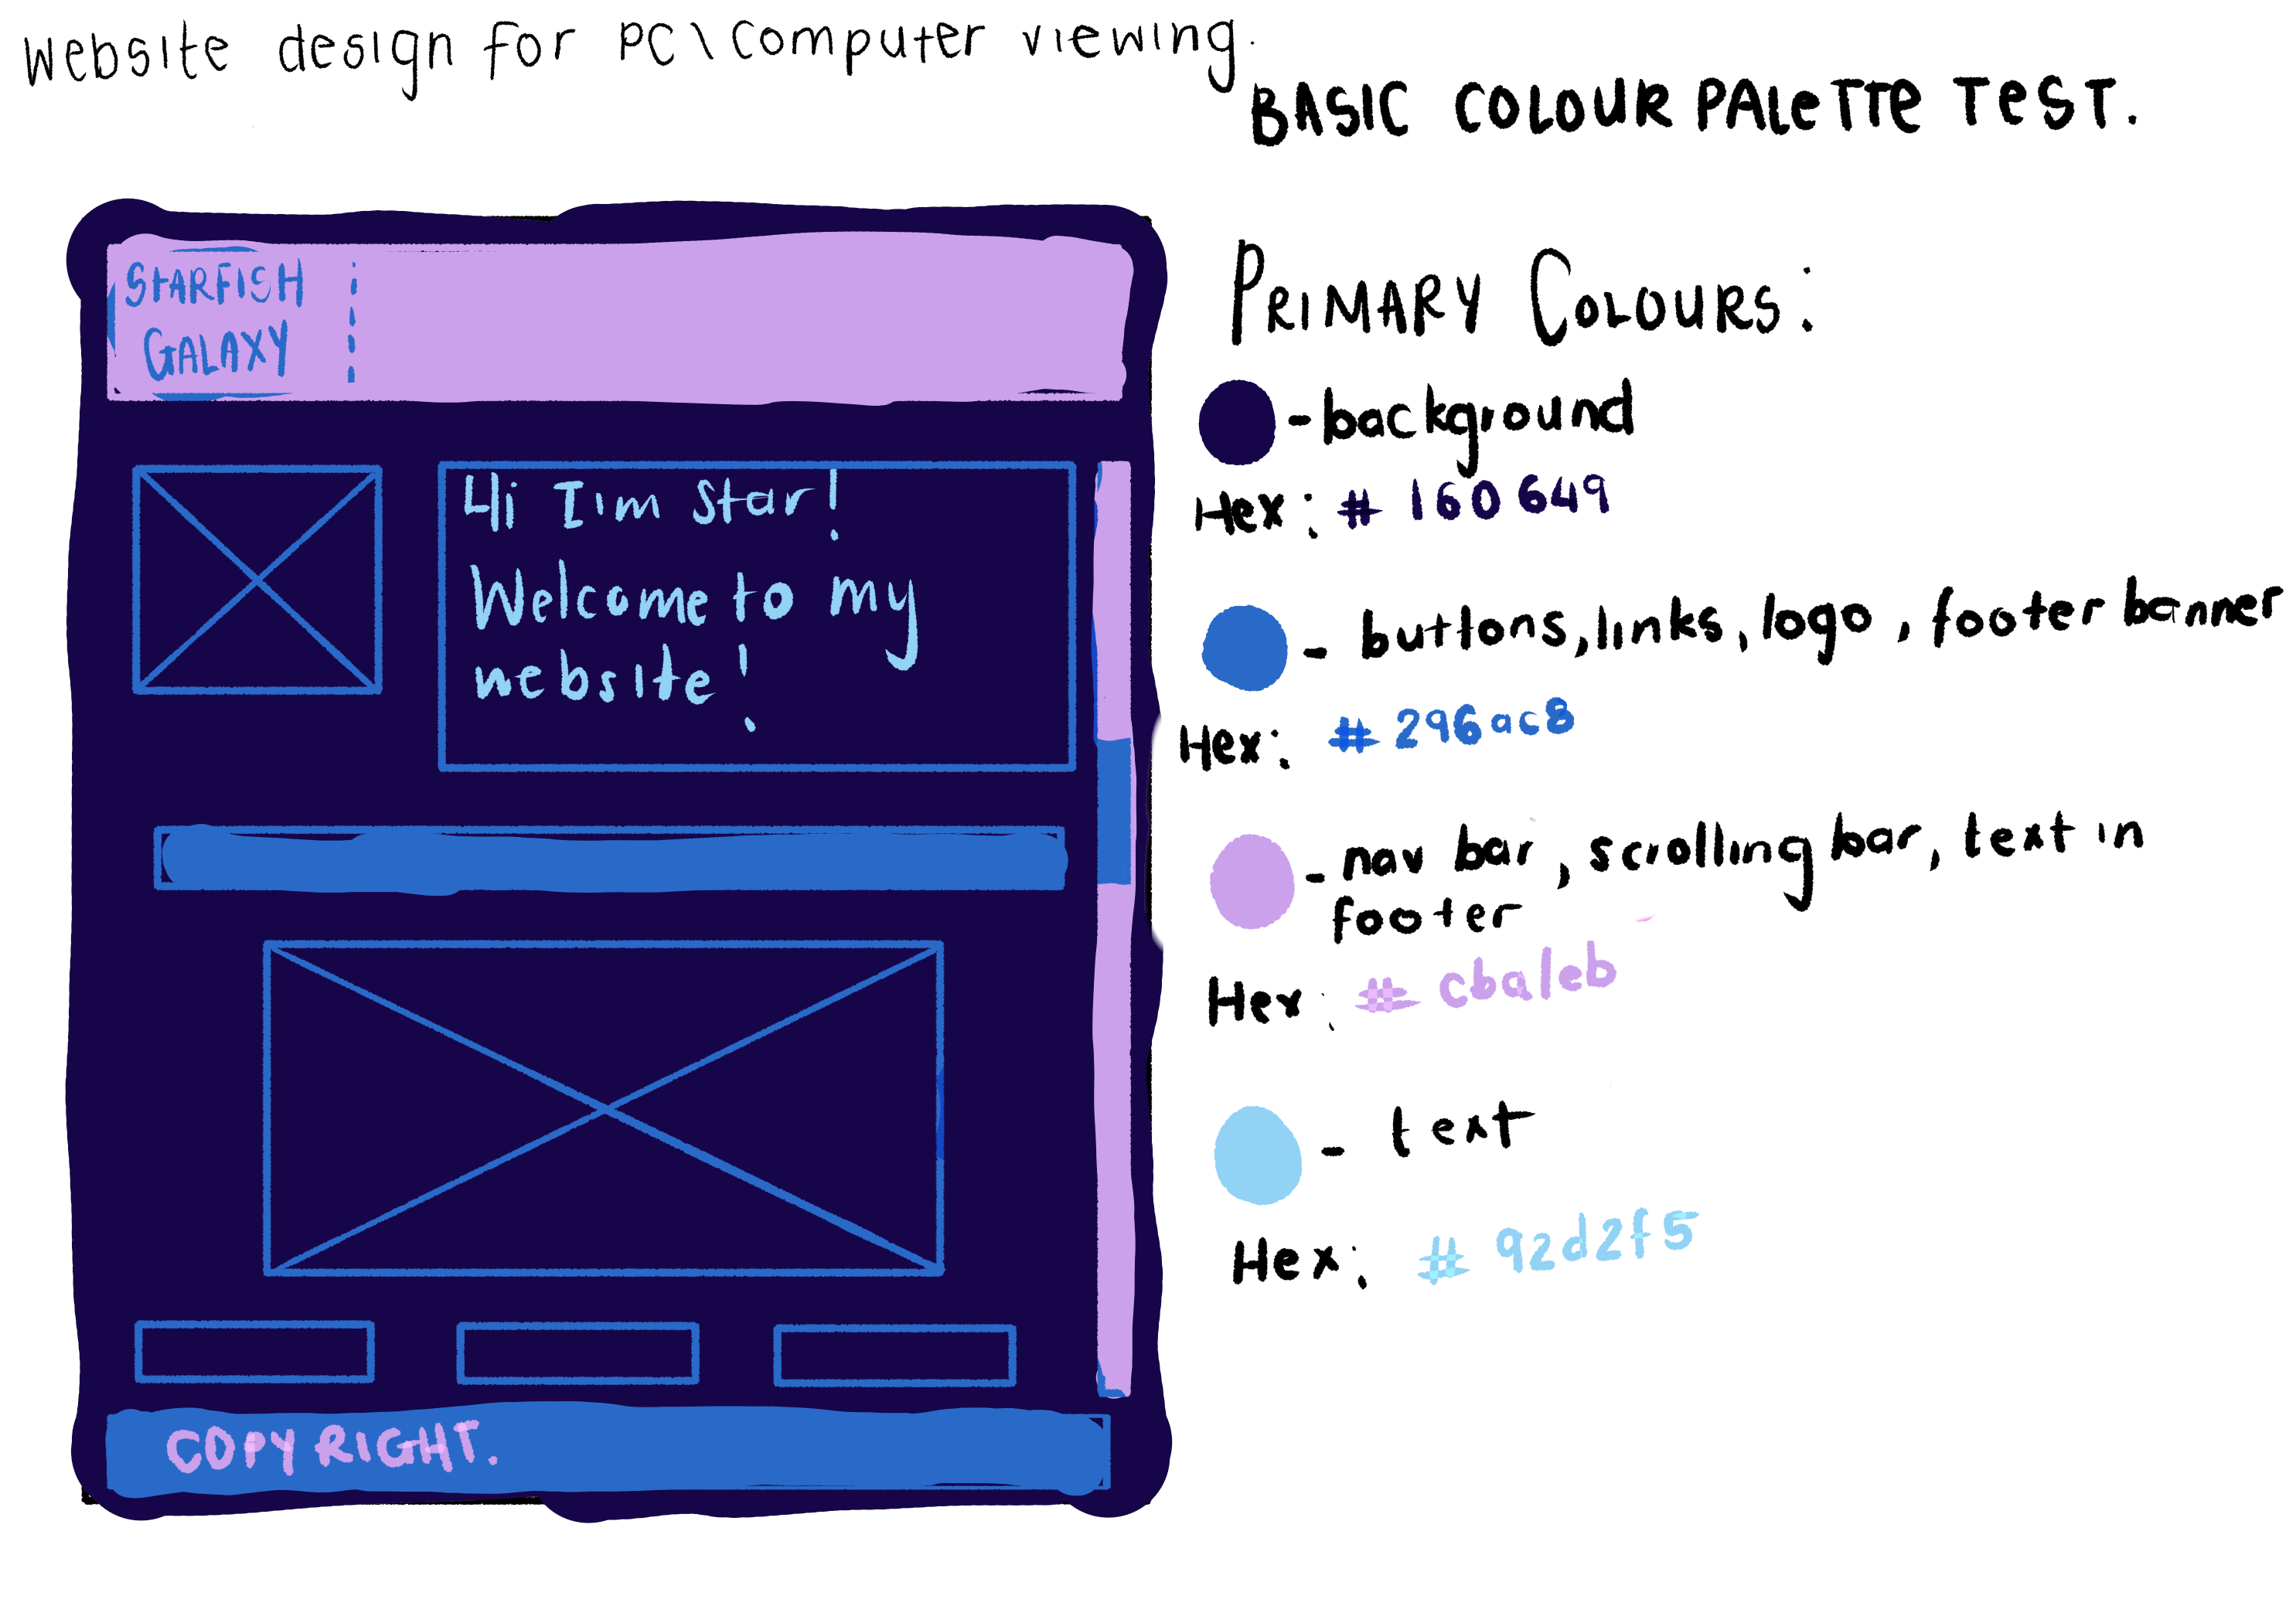 Website design for PC\Computer viewing.
BASIC COLOUR PALETTE TEST.
STARFISH
GALAXY
Hi I'm Star!
Welcome to my
website!
COPYRIGHT.
PRIMARY COLOURS:
- background
Hex: #160649
- buttons, links, logo, footer banner
Hex: #296ac8
- nav bar, scrolling bar, text in
footer
Hex: #cba1eb
- text
Hex: #92d2f5